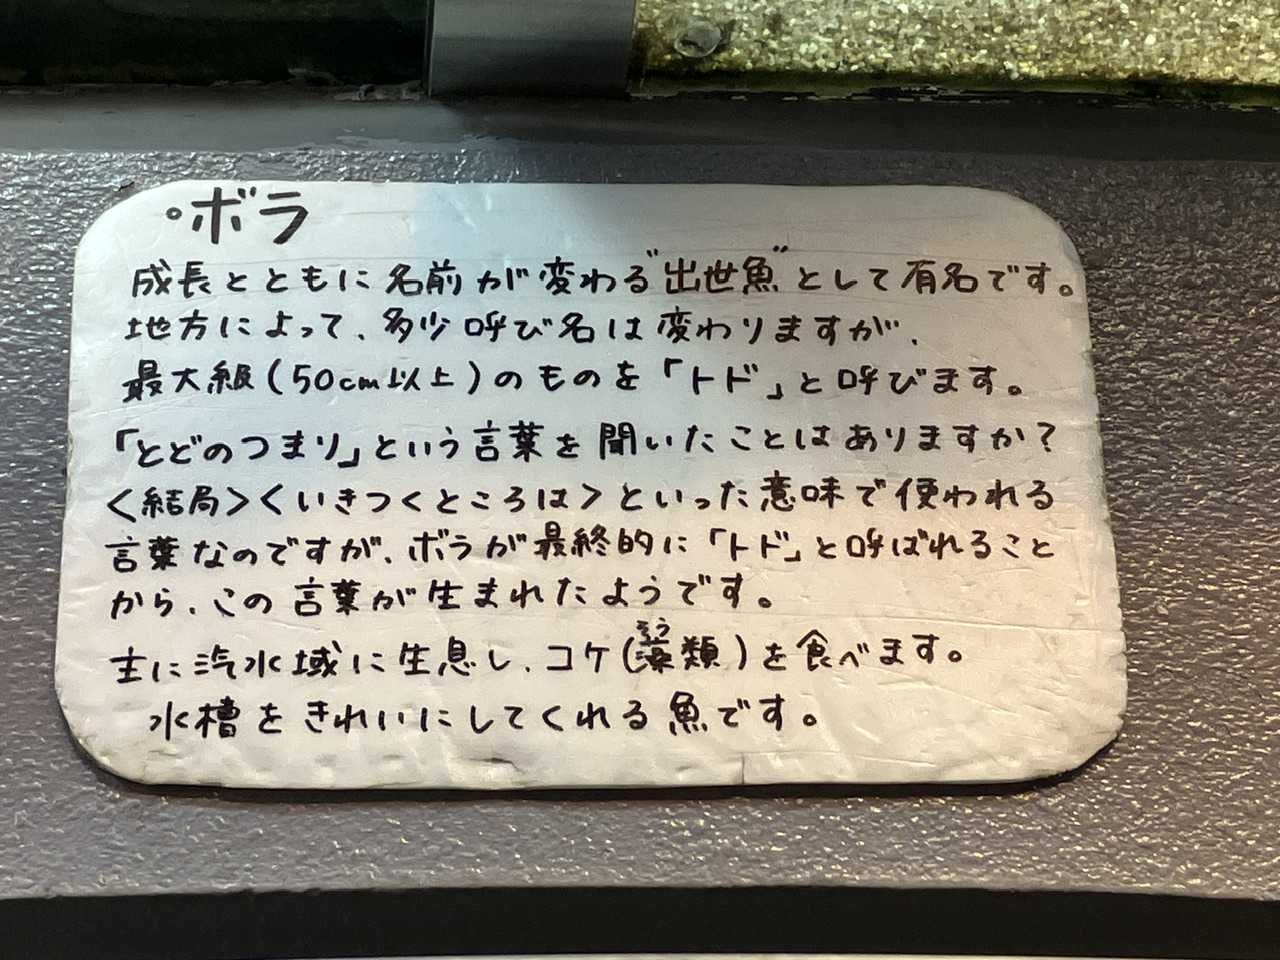 ・ボラ
成長とともに名前が変わる"出世魚"として有名です。
地方によって、多少呼び名は変わりますが、
最大級(50cm以上)のものを「トド」と呼びます。
「とどのつまり」という言葉を聞いたことはありますか?
<結局><いきつくところは>といった意味で使われる
言葉なのですが、ボラが最終的に「トド」と呼ばれること
から、この言葉が生まれたようです。
主に汽水域に生息し、コケ(藻類)を食べます。
そう
水槽をきれいにしてくれる魚です。